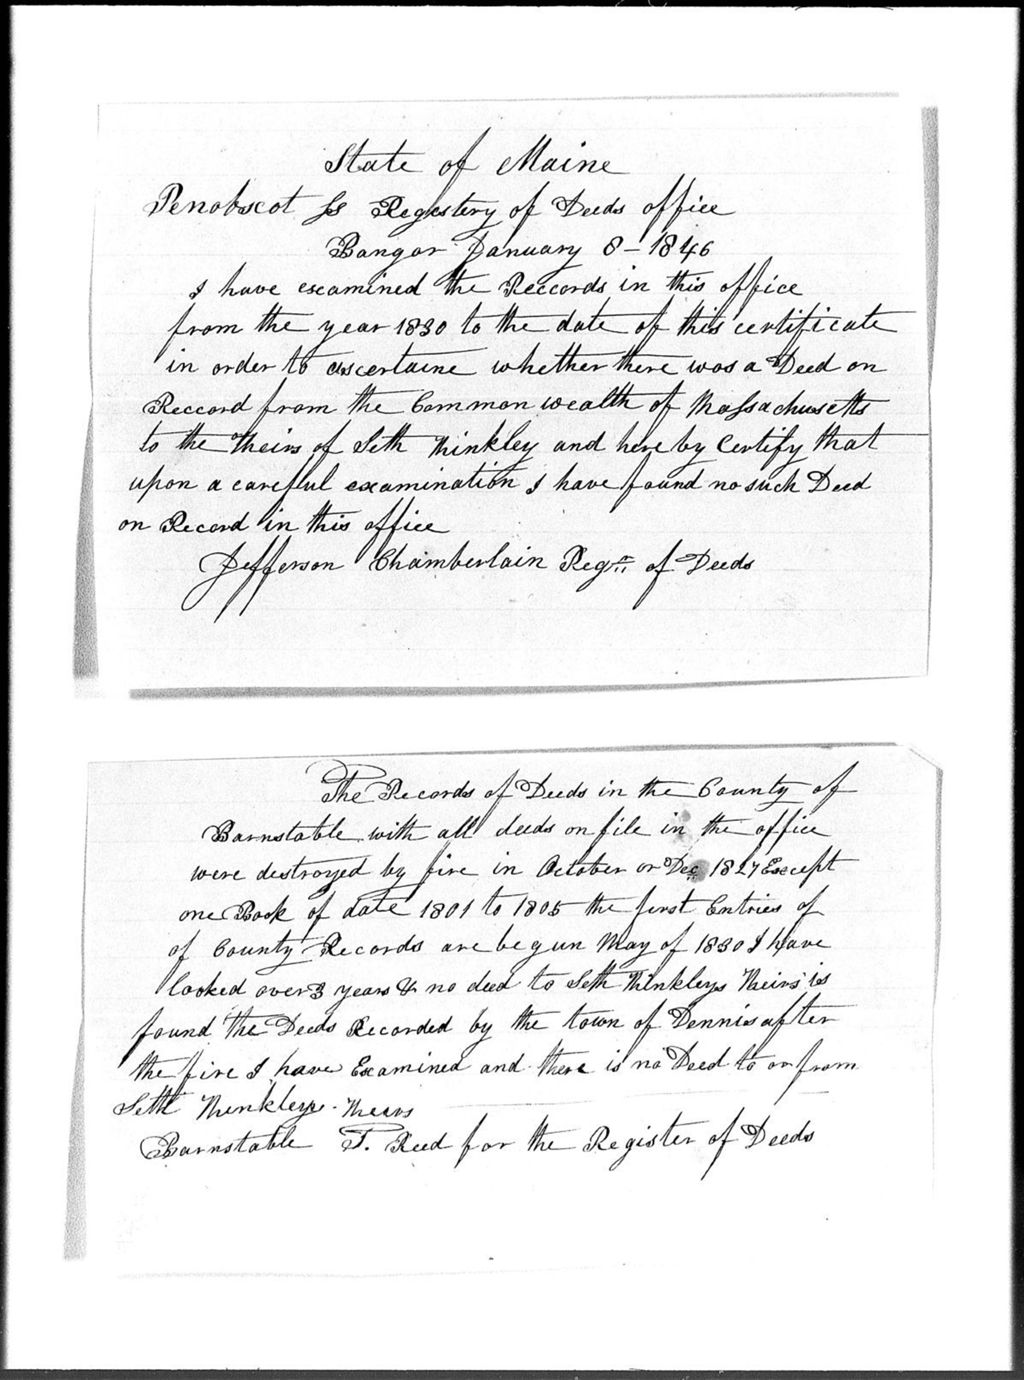 State of Maine
Penobscot ss Regestery of Deeds office
Bangor January 8 - 1846
I have examined the Reccords in this office
from the year 1830 to the date of this certificate
in order to asscertaine whether there was a Deed on
Reccord from the Common wealth of Massachusetts
to the Heirs of Seth Hinkley and here by Certify that
upon a careful examination I have found no such Deed
on Record in this office
Jefferson Chamberlain Regr. of Deeds
The Records of Deeds in the County of
Barnstable with all deeds on file in the office
were destroyed by fire in October or Dec 1827 Except
one Book of date 1801 to 1805 the first Entries of
of County Records are begun May of 1830 I have
looked over 3 years & no deed to Seth Hinkleys Heirs is
found the Deeds Recorded by the town of Dennis after
the fire I have Examined and there is no Deed to or from
Seth Hinkleys Heirs
Barnstable T. Reed for the Register of Deeds